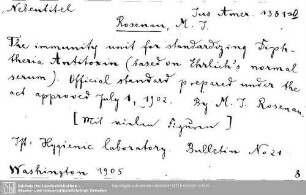 Nebentitel
Jus Amer. 1381
Rosenau, M. J.
The immunity unit for standardizing Diph-
theria Antitoxin (based on Ehrlich's normal
serum). Official standard prepared under the
act approved July 1, 1902. By M. J. Rosenau.
[Mit vielen Figuren]
Iff. Hygienic laboratory. Bulletin No 21.
Washington 1905
8